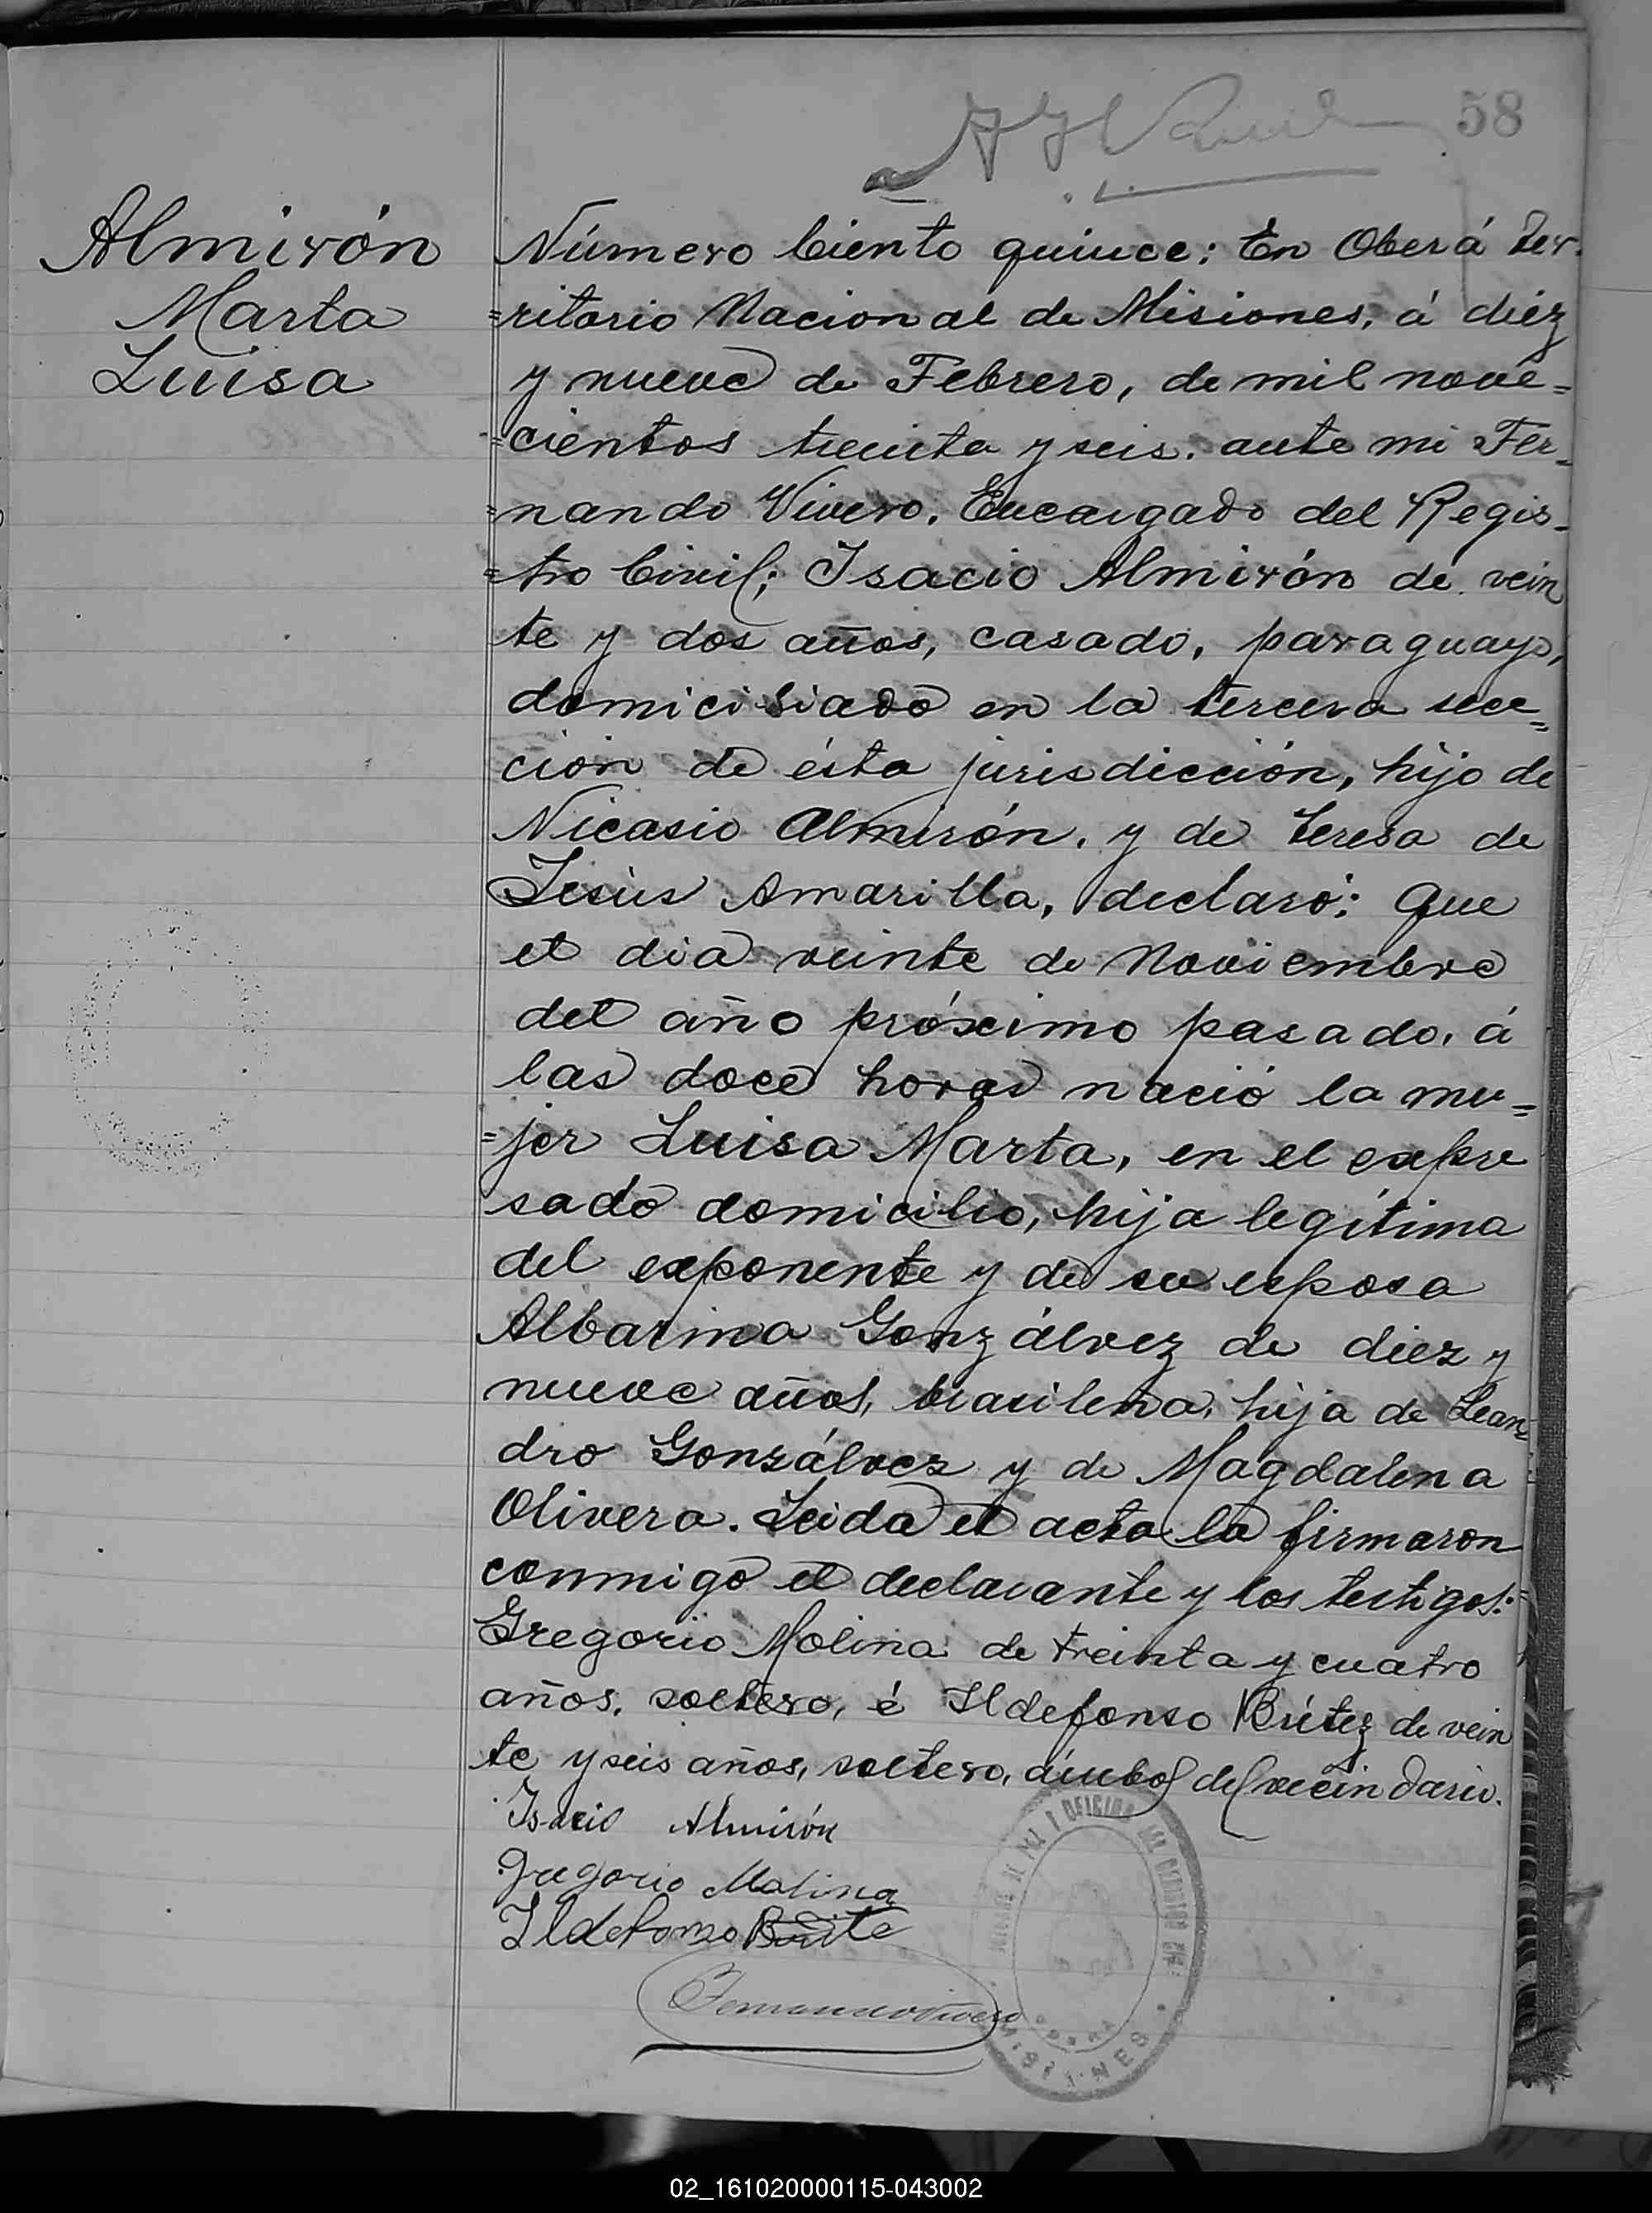 58
Almirón
Marta
Luisa
Número Ciento quince: En Oberá Ter-
=ritorio Nacional de Misiones, á diez
y nueve de Febrero, de mil nove=
=cientos treinta y seis: ante mi Fer=
=nando Vivero, Encargado del Regis=
=tro Civil; Isacio Almirón de vein
te y dos años, casado, paraguayo,
domiciliado en la tercera sec=
ción de ésta jurisdicción, hijo de
Nicasio Almirón, y de Teresa de
Jesús Amarilla, declaró: Que
el dia veinte de Noviembre
del año próximo pasado, á
las doce horas nació la mu=
=jer Luisa Marta, en el expre
sado domicilio, hija legítima
del exponente y de su esposa
Albarina Gonzálvez de diez y
nueve años, brasileña, hija de Lean=
dro Gonzálvez y de Magdalena
Olivera. Leida el acta la firmaron
conmigo el declarante y los testigos:=
Gregorio Molina de treinta y cuatro
años, soltero, é Ildefonso Brítez de vein
te y seis años, soltero, ámbos del vecindario.
Isacio Almirón
Gregorio Molina
Ildefonso
Fernando Vivero
MISIONES
02_161020000115-043002